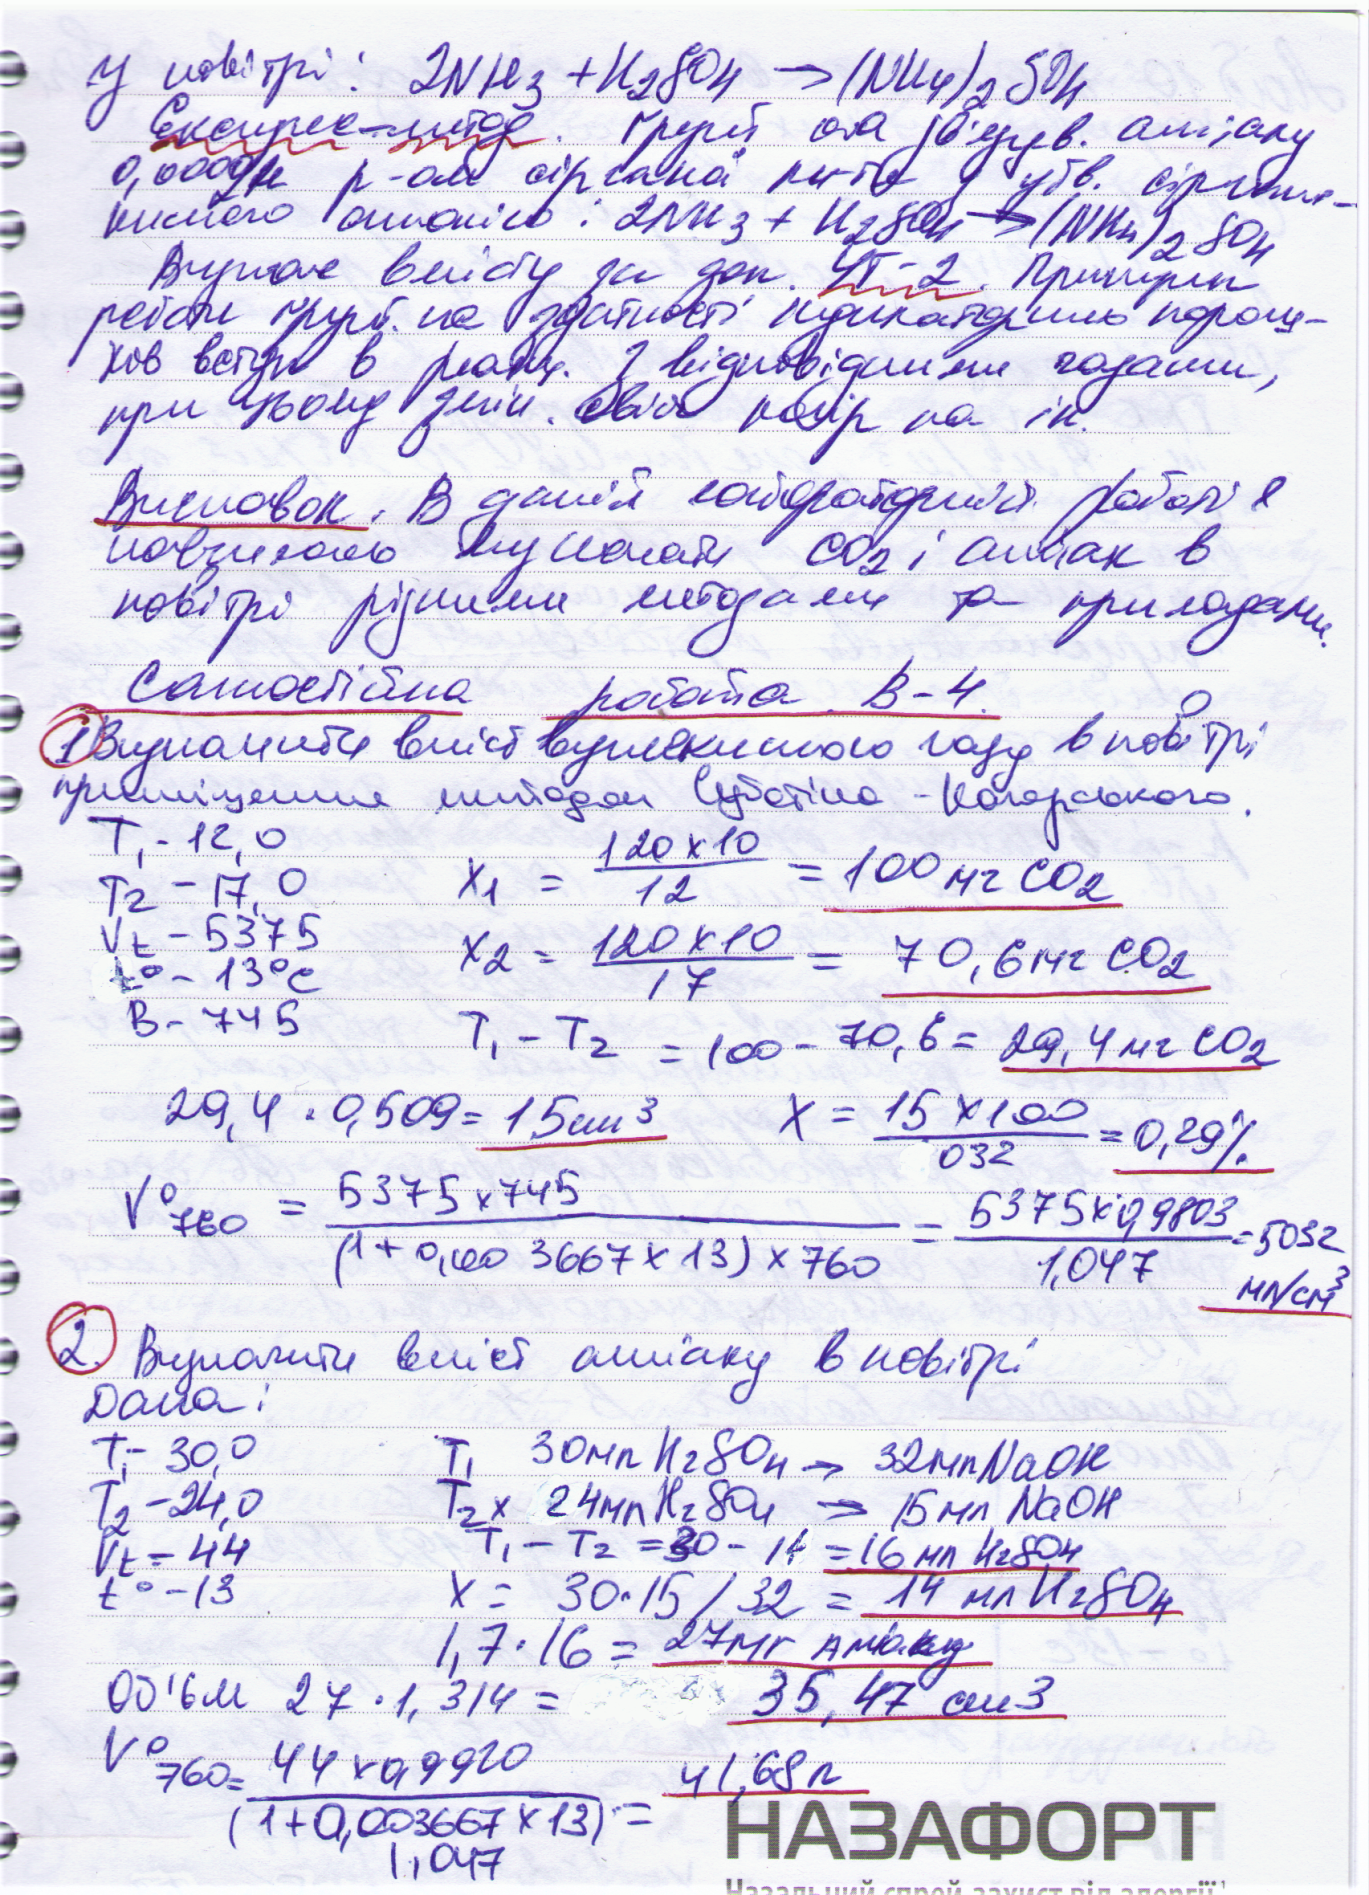 у повітрі: 2NH3 + H2SO4 → (NH4)2SO4
Експрес-метод. Грунт. на з'єднув. аміаку
р-ом сірчаної к-ти з утв. сірчано-
кислого амонію: 2NH3 + H2SO4 → (NH4)2SO4
Визнач вмісту за доп. УГ-2. Принцип
роботи грунт. на здатності індикаторних порош-
ків вступ в реакц. з відповідними газами,
при цьому змін. свій колір на ін.
Висновок. В даній лабораторній роботі я
навчилась визначати CO2 і аміак в
повітрі різними методами та приладами.
Самостійна робота. В-4.
1 Визначити вміст вуглекислого газу в повітрі
приміщення методом Суботіна-Нагорського.
T1 - 12,0
T2 - 17,0
Vt - 5375
t° - 13°c
B - 745
x1 = 120x10 / 12 = 100 мг CO2
x2 = 120x10 / 17 = 70,6 мг CO2
T1 - T2 = 100 - 70,6 = 29,4 мг CO2
29,4 · 0,509 = 15 см3 X = 15x100 / 032 = 0,29%
V°760 = 5375x745 / (1+0,003667x13)x760 = 5375x0,9803 / 1,047 = 5032
мл/см3
2. Визначити вміст аміаку в повітрі
Дано:
T1 - 30,0
T2 - 24,0
Vt = 44
t° - 13
T1 30 мл H2SO4 → 32 мл NaOH
T2 x 24 мл H2SO4 → 15 мл NaOH
T1 - T2 = 30 - 14 = 16 мл H2SO4
X = 30·15/32 = 14 мл H2SO4
1,7·16 = 27 мг аміаку
Об'єм 27·1,314 = 35,47 см3
V°760 = 44x0,9920 / (1+0,003667x13) = 41,68 л
1,047
НАЗАФОРТ
Назальний спрей захист від алергії